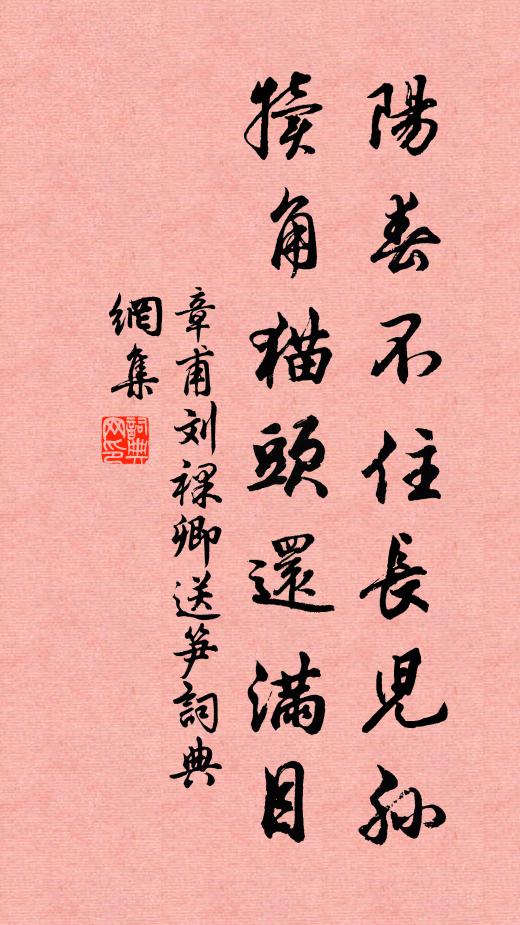 陽春不住長児孫
犢角猫頭還滿目
章甫刘裸卿送笋詞典
網集
詞典
网印